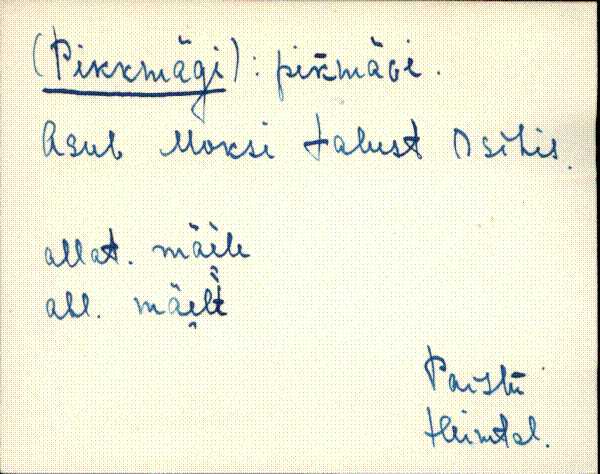 (Pikkmägi): pik̄mäGi.
Asub Moksi talust O sihis.
allat. mäile
abl. mäilt
Paistu
Heimtal.